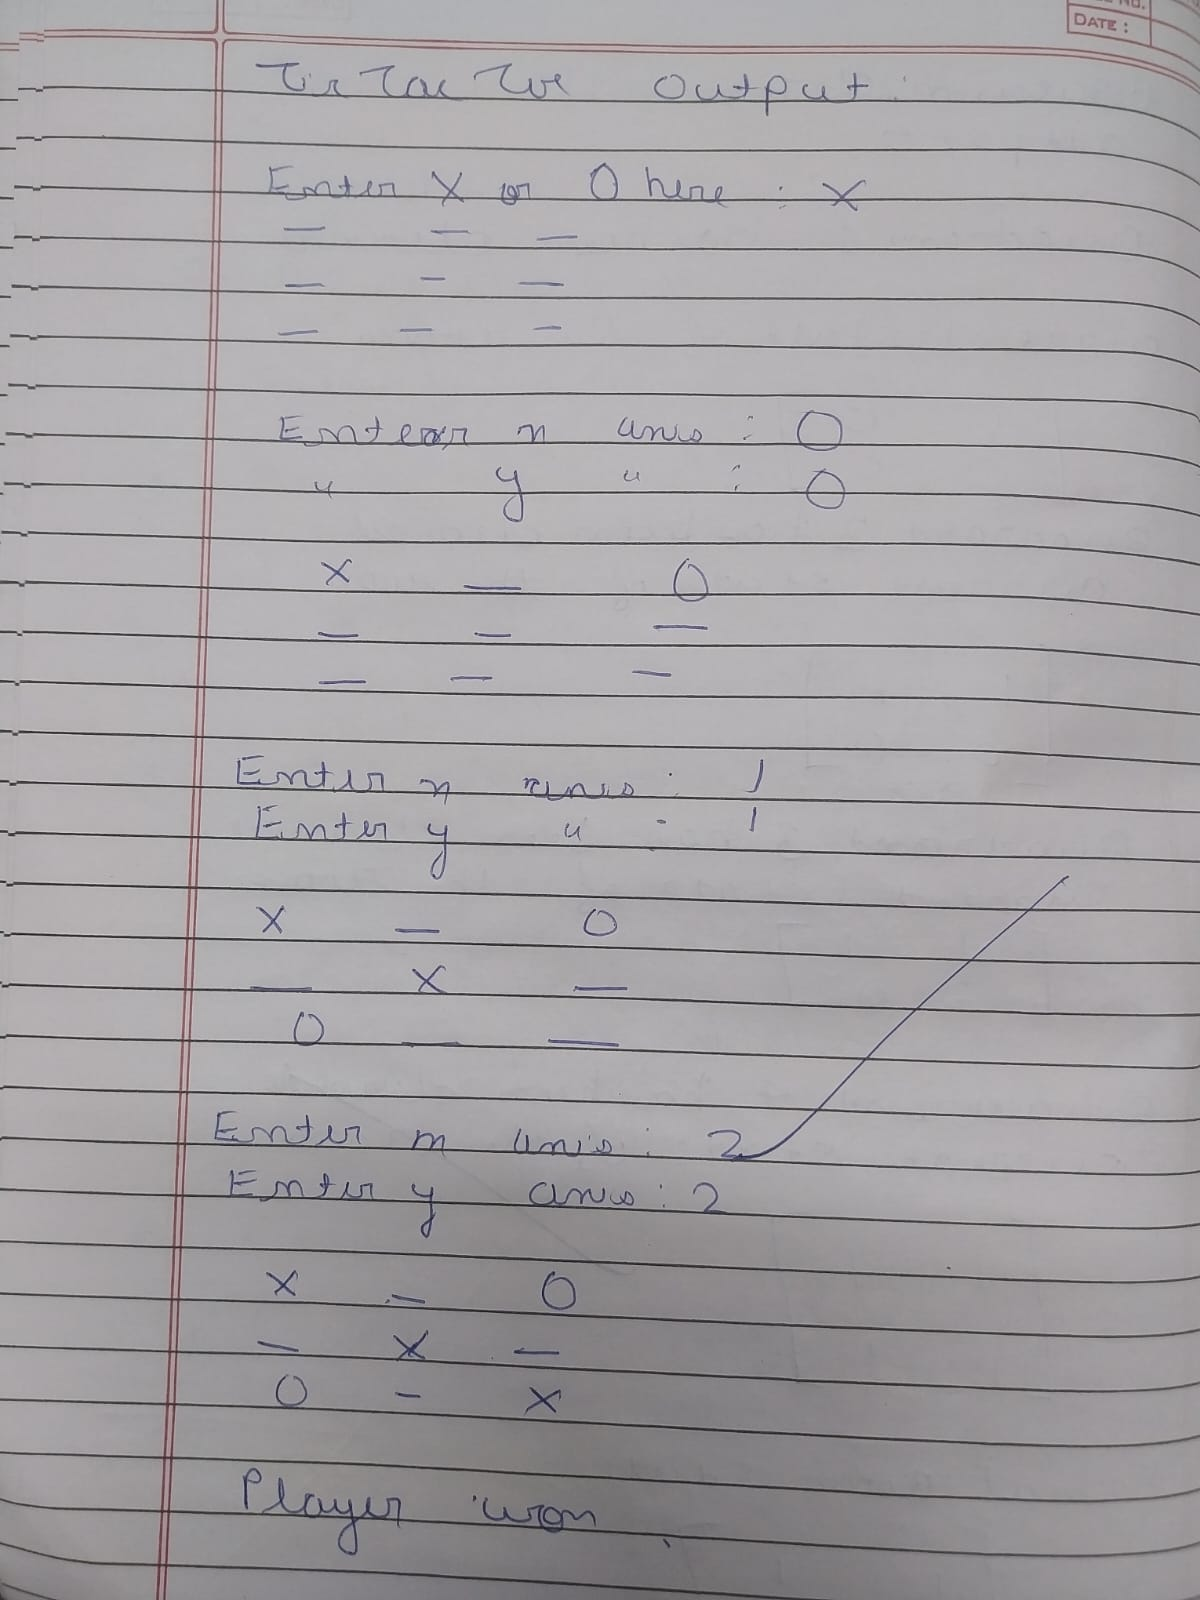 DATE :
Tic Tac Toe Output :
Enter X or O here : X
— — —
— — —
— — —
Enter x axis : 0
" y " : 0
X — O
— — —
— — —
Enter x axis : 1
Enter y " - 1
X — O
— X —
O — —
Enter x axis : 2
Enter y axis : 2
X — O
— X —
O — X
Player won.